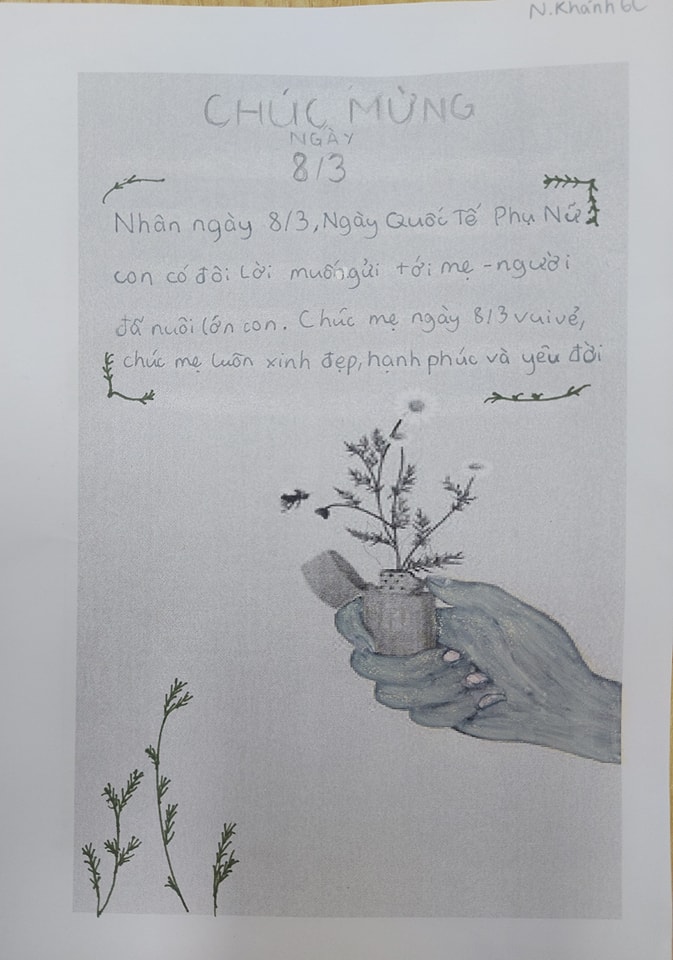 N.Khánh 6C
CHÚC MỪNG
NGÀY
8/3
Nhân ngày 8/3, Ngày Quốc Tế Phụ Nữ
con có đôi Lời muốn gửi tới mẹ - người
đã nuôi lớn con. Chúc mẹ ngày 8/3 vui vẻ,
chúc mẹ luôn xinh đẹp, hạnh phúc và yêu đời